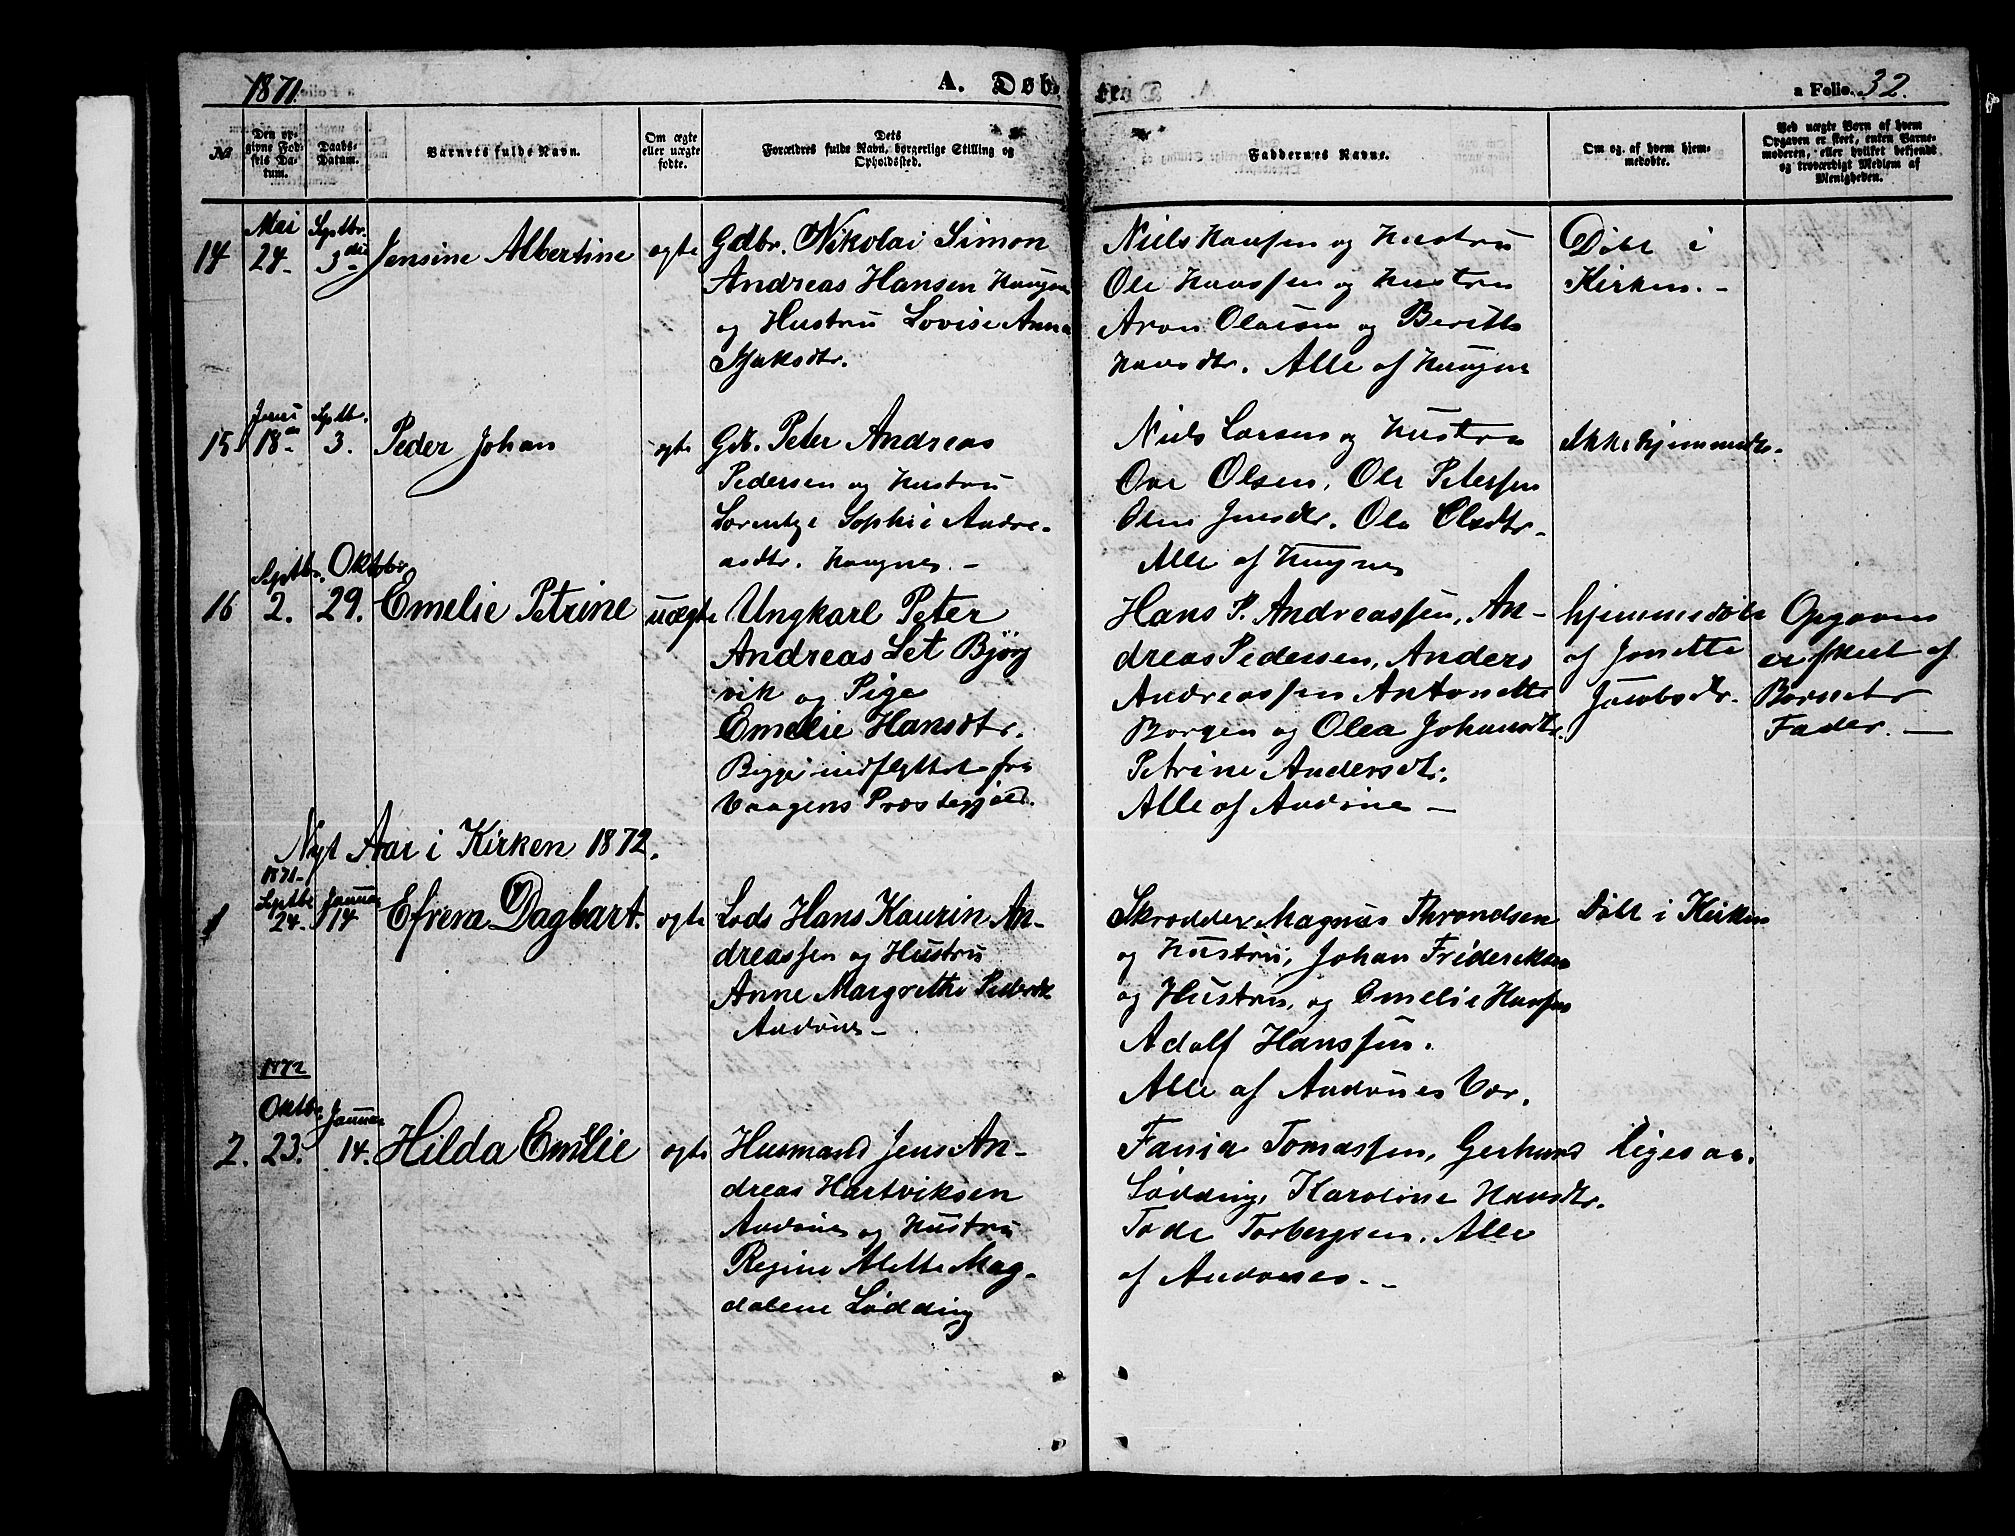 1871.
A. Døb-
te.
a Folio. 32.
No
Den op-
givne Fød-
sels Da-
tum.
Daabs-
Datum.
Barnets fulde Navn.
Om ægte
eller uægte
fødte.
Dets
Forældres fulde Navn, borgerlige Stilling og
Opholdssted.
Faddernes Navne.
Om og, af hvem hjem-
medøbte.
Ved uægte Børn af hvem
Opgaven er skeet, enten Barne-
moderen, eller hvilket bekjendt
og troværdigt Medlem af
Menigheden.
14
Mai
24-
Sptbr.
3die
Jensine Albertine
ægte
Gdbr. Nikolai Simon
Andreas Hansen Haugnes
og Hustru Lovise Anna
Isaksdtr.
Niels Hansen og Hustru
Ole Hanssen og Hustru
Aron Olaisen og Berethe
Hansdtr. Alle af Haugnes
Døbt i
Kirken. -
15
Juni
18de
Sptbr.
3.
Peder Johan
ægte
Gdb. Peter Andreas
Pedersen og Hustru
Lorentze Sophie Andre-
asdtr. Haugnes. -
Niels Larsen og Hustru
Ove Olsen, Ole Peterssen
Oline Jensdtr. Ola Olsdtr-
Alle af Haugnes
Ikke hjemmedbt.
16
Septbr.
2.
Oktobr
29.
Emelie Petrine
uægte
Ungkarl Peter
Andreas Set Bjørg
vik og Pige
Emelie Hansdtr.
Begge indflyttet fra
Vaagens Præstegjæld.
Hans P. Andreassen, An-
dreas Pedersen, Anders
Andreassen Antonette
Borgen og Olea Johansdtr.
Petrine Andersdtr.
Alle af Andøne -
hjemmedøbt
af Jonette
Jacobsdtr.
Opgaven
er skeet af
Barnets
Fader. -
Nyt Aar i Kirken 1872.
1
1871-
Septbr
24.
Januar
14
Efrem Dagbart.
ægte
Lods Hans Kaurin An-
dreassen og Hustru
Anne Margrethe Pedersdtr
Andønes -
Skrædder Magnus Throndsen
og Hustru, Johan Frideriksen
og Hustru, og Emelie Hansen
Adolf Hanssen.
Alle af Andønes Vær.
Døbt i Kirken
2.
1872
Oktbr.
23.
Januar
14.
Hilda Emilie
ægte
Husmand Jens An-
dreas Hartviksen
Andønes og Hustru
Regine Alette Mag-
dalene Lødding
Tomassen, Gerhard
Lødding, Karoline Hansdtr.
Tode Torbergsen. Alle
af Andønes. -
ligesaa.